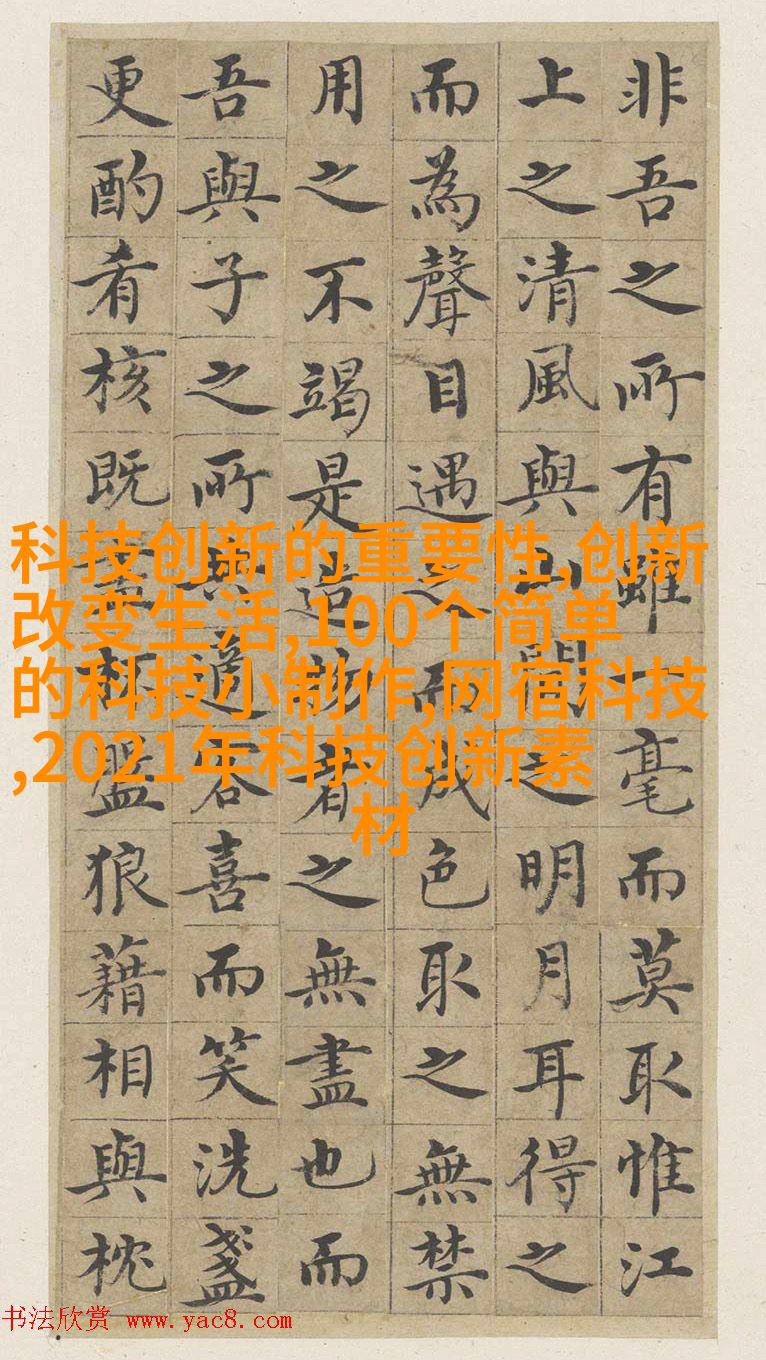 非吾之所有雖一毫而莫取惟江
上之清風與山間之明月耳得之
而為聲目遇之而成色取之無禁
用之不竭是造物者之無盡也而
吾與子之所共適客喜而笑洗盞
更酌肴核既盡杯盤狼藉相與枕
科技创新的重要性,创新
改变生活,100个简单
的科技小制作,网宿科技
,2021年科技创新素
材
书法欣赏 www.yac8.com